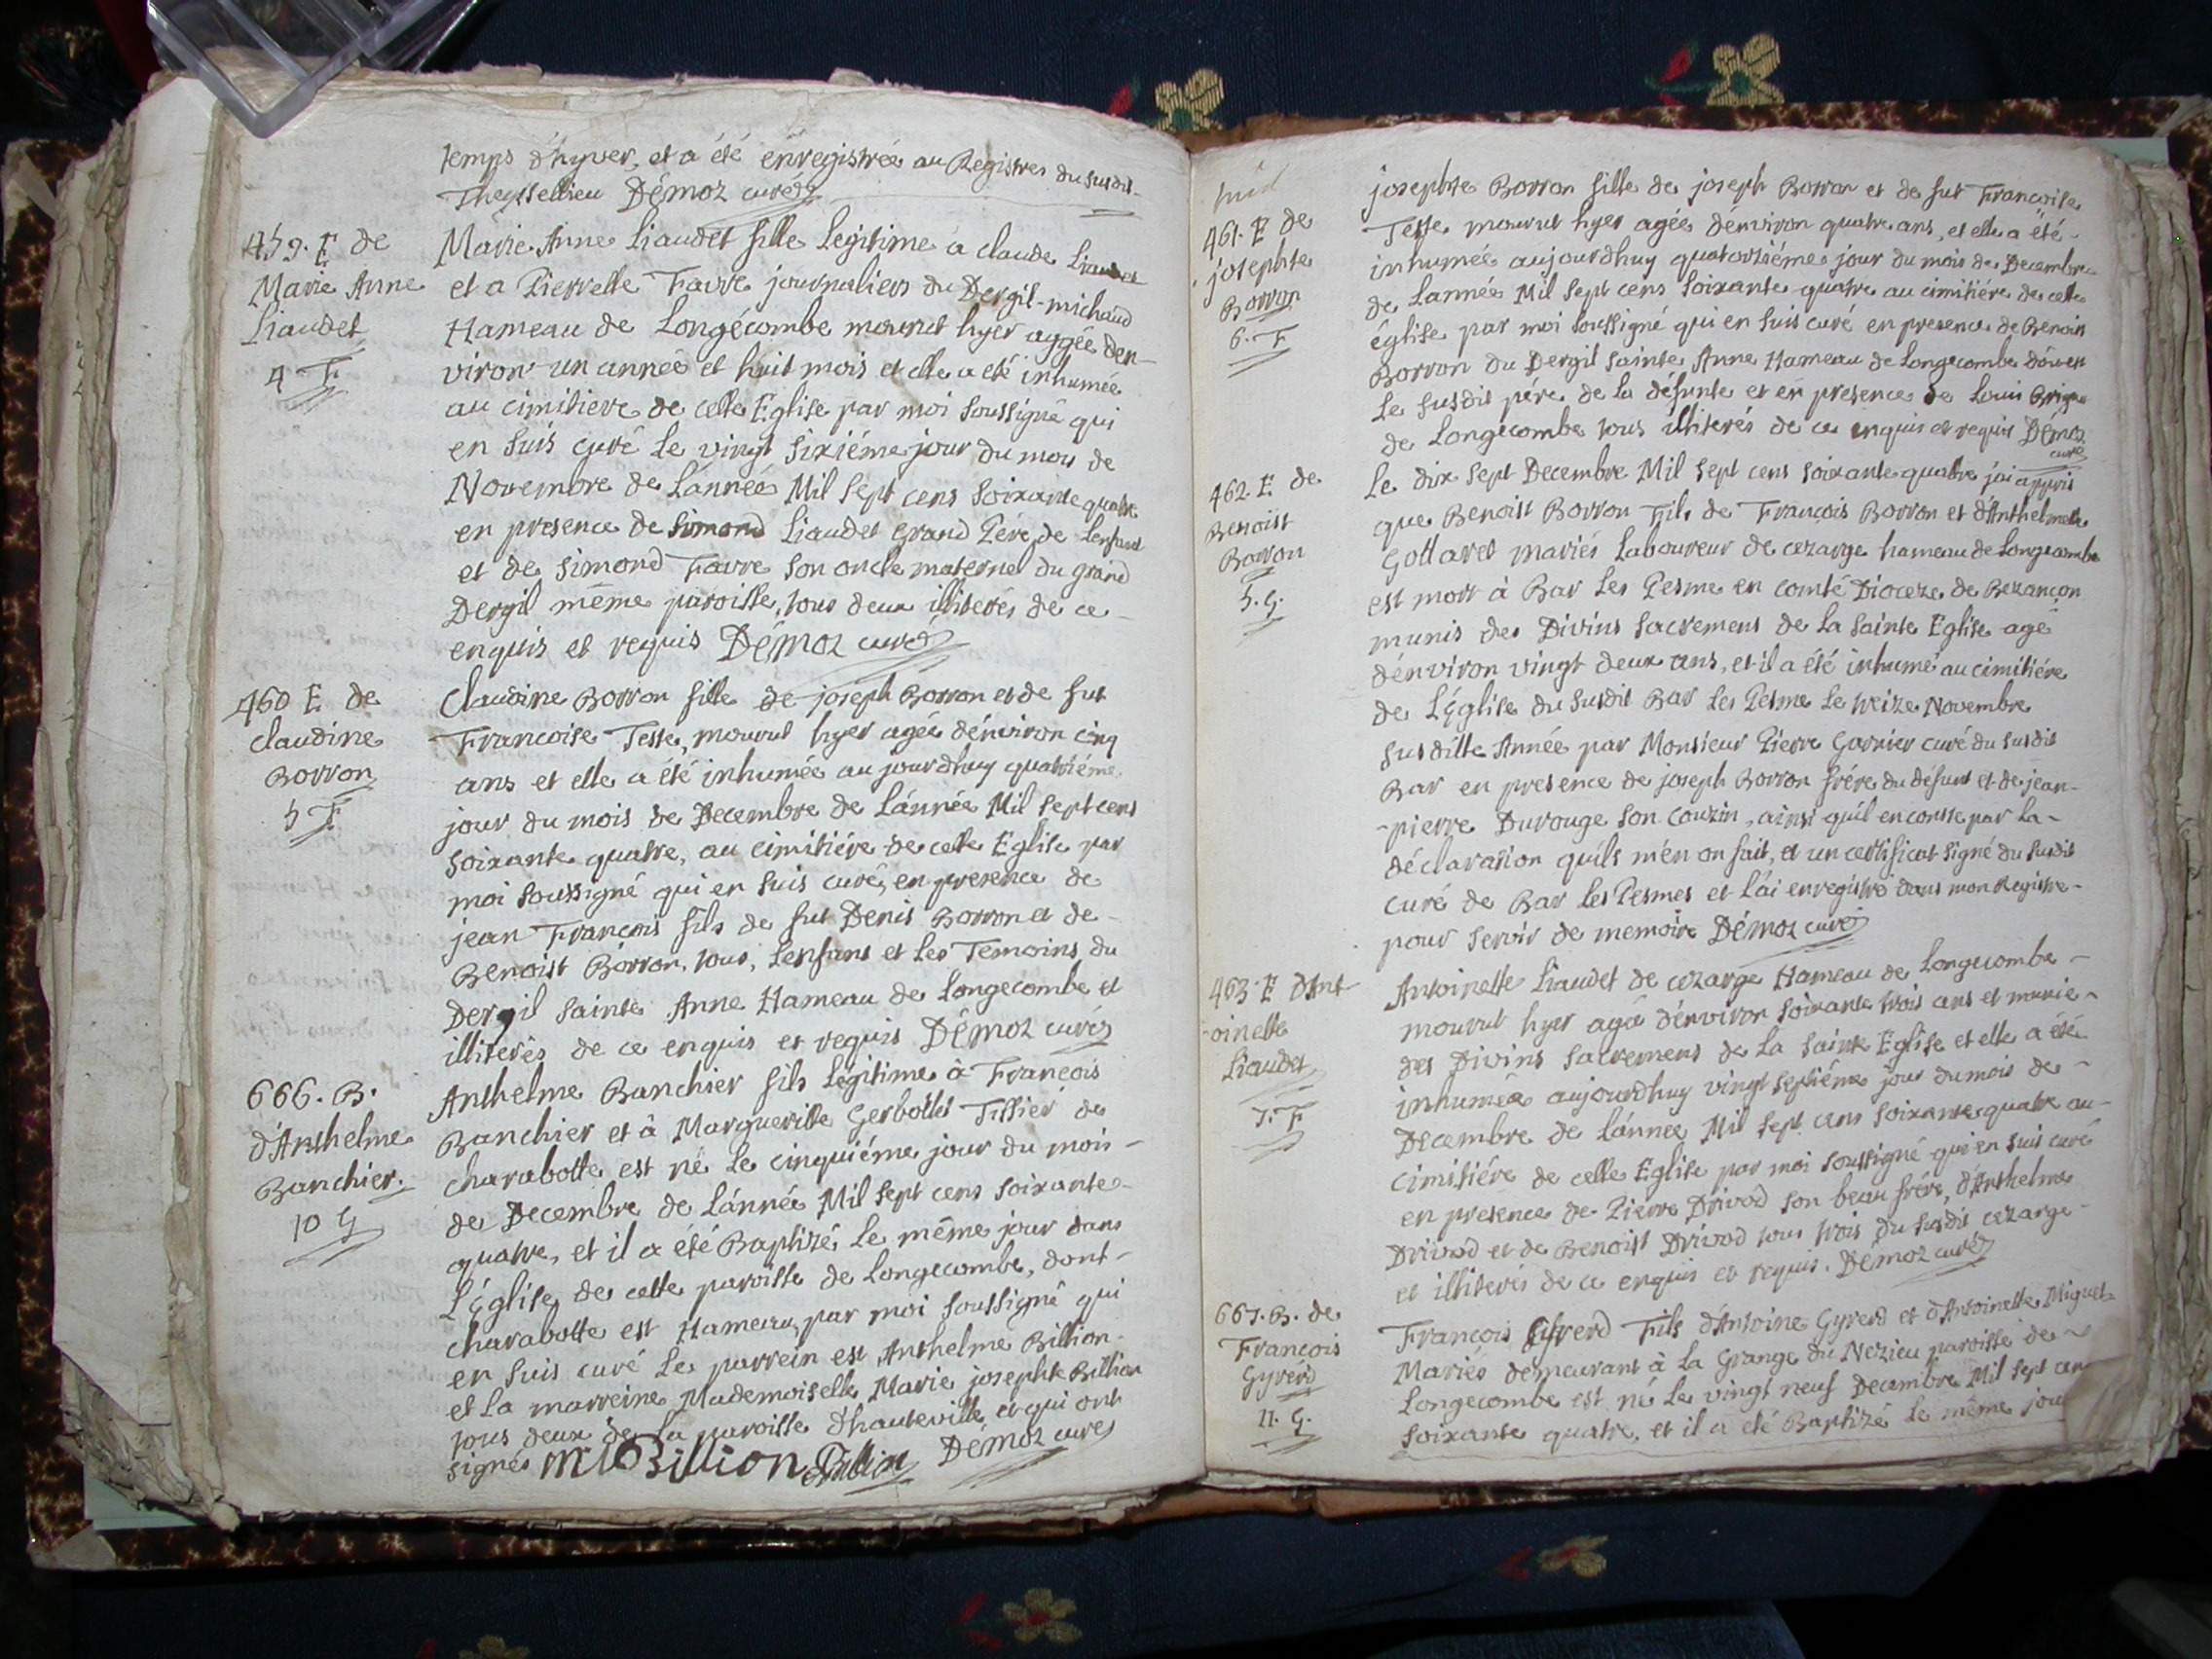 temps d'hyver, et a été énregistrée au Registres du susdit
Theyssellieu Démoz curé
459. E de
Marie Anne
Liaudet
4 F
Marie Anne Liaudet fille Legitime a claude Liaudet
et a Pierrette Favre journaliers du Dergil-michaud
Hameau de Longécombe mourut hyer aggée den-
viron un année et huit mois et elle a eté inhumée
au cimitiere de cette Eglise par moi soussigné qui
en suis curé Le vingt sixiéme jour du mois de
Novembre de Lánnée Mil sept cens soixante quatre
en presence de simond Liaudet grand Pére de Lenfant
et de simond Favre son oncle maternel du grand
Dergil même paroisse, tous deux illiterés de ce
enquis et requis Démoz curé
460 E de
claudine
Borron
5 F
Claudine Borron fille de joseph Borron et de fut
Francoise Teste, mourut hyer agée dénviron cinq
ans et elle a été inhumée aujourdhuy quatriéme
jour du mois de Decembre de Lánnée Mil sept cens
soixante quatre, au cimitiére de cette Eglise par
moi soussigné qui en suis curé, en presence de
jean François fils de fut Denis Borron et de
Benoist Borron, tous, Lenfans et les Temoins, du
Dergil sainte Anne Hameau de Longecombe et
illiterés de ce enquis et requis Démoz curé
666. B.
d'Anthelme
Banchier.
10 G
Anthelme Banchier fils Légitime à Francois
Banchier et à Margueritte Gerbollet Tissier de
charabotte est né Le cinquiéme jour du mois
de Decembre de Lánnée Mil sept cens soixante
quatre, et il a été Baptizé Le même jour dans
L'Église de cette paroisse de Longecombe, dont
charabotte est Hameau, par moi soussigné qui
en suis curé Le parrein est Anthelme Billion
et La marreine Mademoiselle Marie josephte Billion
tous deux de La paroisse d'hauteville, et qui ont
signés M J Billion Billion Démoz curé
461. E de
josephte
Borron
6. F
josephte Borron fille de joseph Borron et de fut Francoise
Teste mourut hyer agée dénviron quatre ans, et elle a été
inhumée aujourdhuy quatorziéme jour du mois de Decembre
de Lannée Mil sept cens soixante quatre au cimitiére de cette
église par moi soussigné qui en suis curé en presence de Benoist
Borron du Dergil sainte Anne Hameau de Longecombe dóu est
Le susdit pére de la défunte et en presence de Louis
de Longecombe tous illiterés de ce enquis et requis Démoz
curé
462. E de
Benoist
Borron
5. G.
Le dix sept Decembre Mil sept cens soixante quatre j'ai appris
que Benoist Borron Fils de François Borron et d'Anthelmette
Gottaret mariés Laboureur de cezarge hameau de Longecombe
est mort à Bar Les Pesme en comté Dioceze de Bezançon
munis des Divins sacremens de La sainte Eglise agé
dénviron vingt deux ans, et il a été inhumé au cimitiére
de L'Église du susdit Bar Les Pesme Le treize Novembre
susditte Année par Monsieur Pierre Garnier curé du susdit
Bar en presence de joseph Borron frére du défunt et de jean-
-pierre Durouge son couzin, ainsi qu'il en conste par La-
déclaration quils m'en on fait, et un certificat signé du susdit
curé de Bar Les Pesmes et L'ai enregistré dans mon Registre-
pour servir de memoire Démoz curé
463. E d'Ant
-oinette
Liaudet
7. F
Antoinette Liaudet de cezarge Hameau de Longecombe -
mourut hyer agée dénviron soixante trois ans et munie -
des Divins sacremens de La sainte Eglise et elle a été
inhumée aujourdhuy vingt septiéme jour du mois de -
Decembre de Lánnée Mil sept cens soixante quatre au-
cimitiére de cette Eglise par moi soussigné qui en suis curé
en presence de Pierre Drivod son beau frére, d'Anthelme
Drivod et de Benoist Drivod tous trois du susdit cezarge-
et illiterés de ce enquis et requis. Démoz curé
667. B. de
Francois
Gyrerd
11. G.
François Gyrerd Fils d'Antoine Gyrerd et d'Antoinette Miguet
Mariés demeurant à La Grange du Nezieu paroisse de
Longecombe est né Le vingt neuf Decembre Mil sept cen
soixante quatre, et il a été Baptizé Le même jour